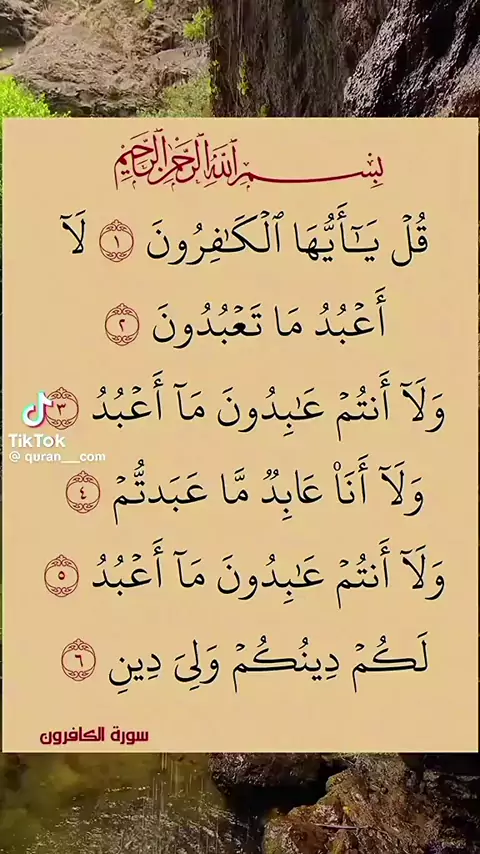 بِسْمِ ٱللَّهِ ٱلرَّحْمَٰنِ ٱلرَّحِيمِ
قُلْ يَـٰٓأَيُّهَا ٱلْكَـٰفِرُونَ ١ لَآ
أَعْبُدُ مَا تَعْبُدُونَ ٢
وَلَآ أَنتُمْ عَـٰبِدُونَ مَآ أَعْبُدُ ٣
TikTok
@ quran__com
وَلَآ أَنَا۠ عَابِدٌ مَّا عَبَدتُّمْ ٤
وَلَآ أَنتُمْ عَـٰبِدُونَ مَآ أَعْبُدُ ٥
لَكُمْ دِينُكُمْ وَلِىَ دِينِ ٦
سورة الكافرون